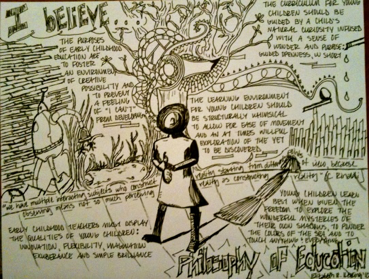 I believe....
THE PURPOSES
OF EARLY CHILDHOOD
EDUCATION ARE
TO FOSTER
AN ENVIRONMENT
OF CREATIVE
POSSIBILITY AND
TO PREVENT
A FEELING
OF "I CAN'T"
FROM DEVELOPING
THE CURRICULUM FOR YOUNG
CHILDREN SHOULD BE
GUIDED BY A CHILD'S
NATURAL CURIOSITY INFUSED
WITH A SENSE OF
WONDER AND PURPOSE:
GUIDED OPENNESS, IN SHORT
THE LEARNING ENVIRONMENT
FOR YOUNG CHILDREN SHOULD
BE STRUCTURALLY WHIMSICAL
TO ALLOW FOR EASE OF MOVEMENT
AND IN AT TIMES WILLFUL
EXPLORATION OF THE YET
TO BE DISCOVERED
reality starting from different
reality is constructing reality" (C. Rinaldi)
"we had multiple interacting subjects who construct
EARLY CHILDHOOD TEACHERS MUST DISPLAY
THE QUALITIES OF YOUNG CHILDREN:
IMAGINATION
EXUBERANCE AND SIMPLE BRILLIANCE
YOUNG CHILDREN LEARN
BEST WHEN GIVEN THE
FREEDOM TO EXPLORE THE
WONDERFUL MYSTERIES OF
THEIR OWN SHADOWS, TO PONDER
THE COLORS OF THE SEA AND TO
TOUCH ANYTHING & EVERYTHING
Philosophy of Education